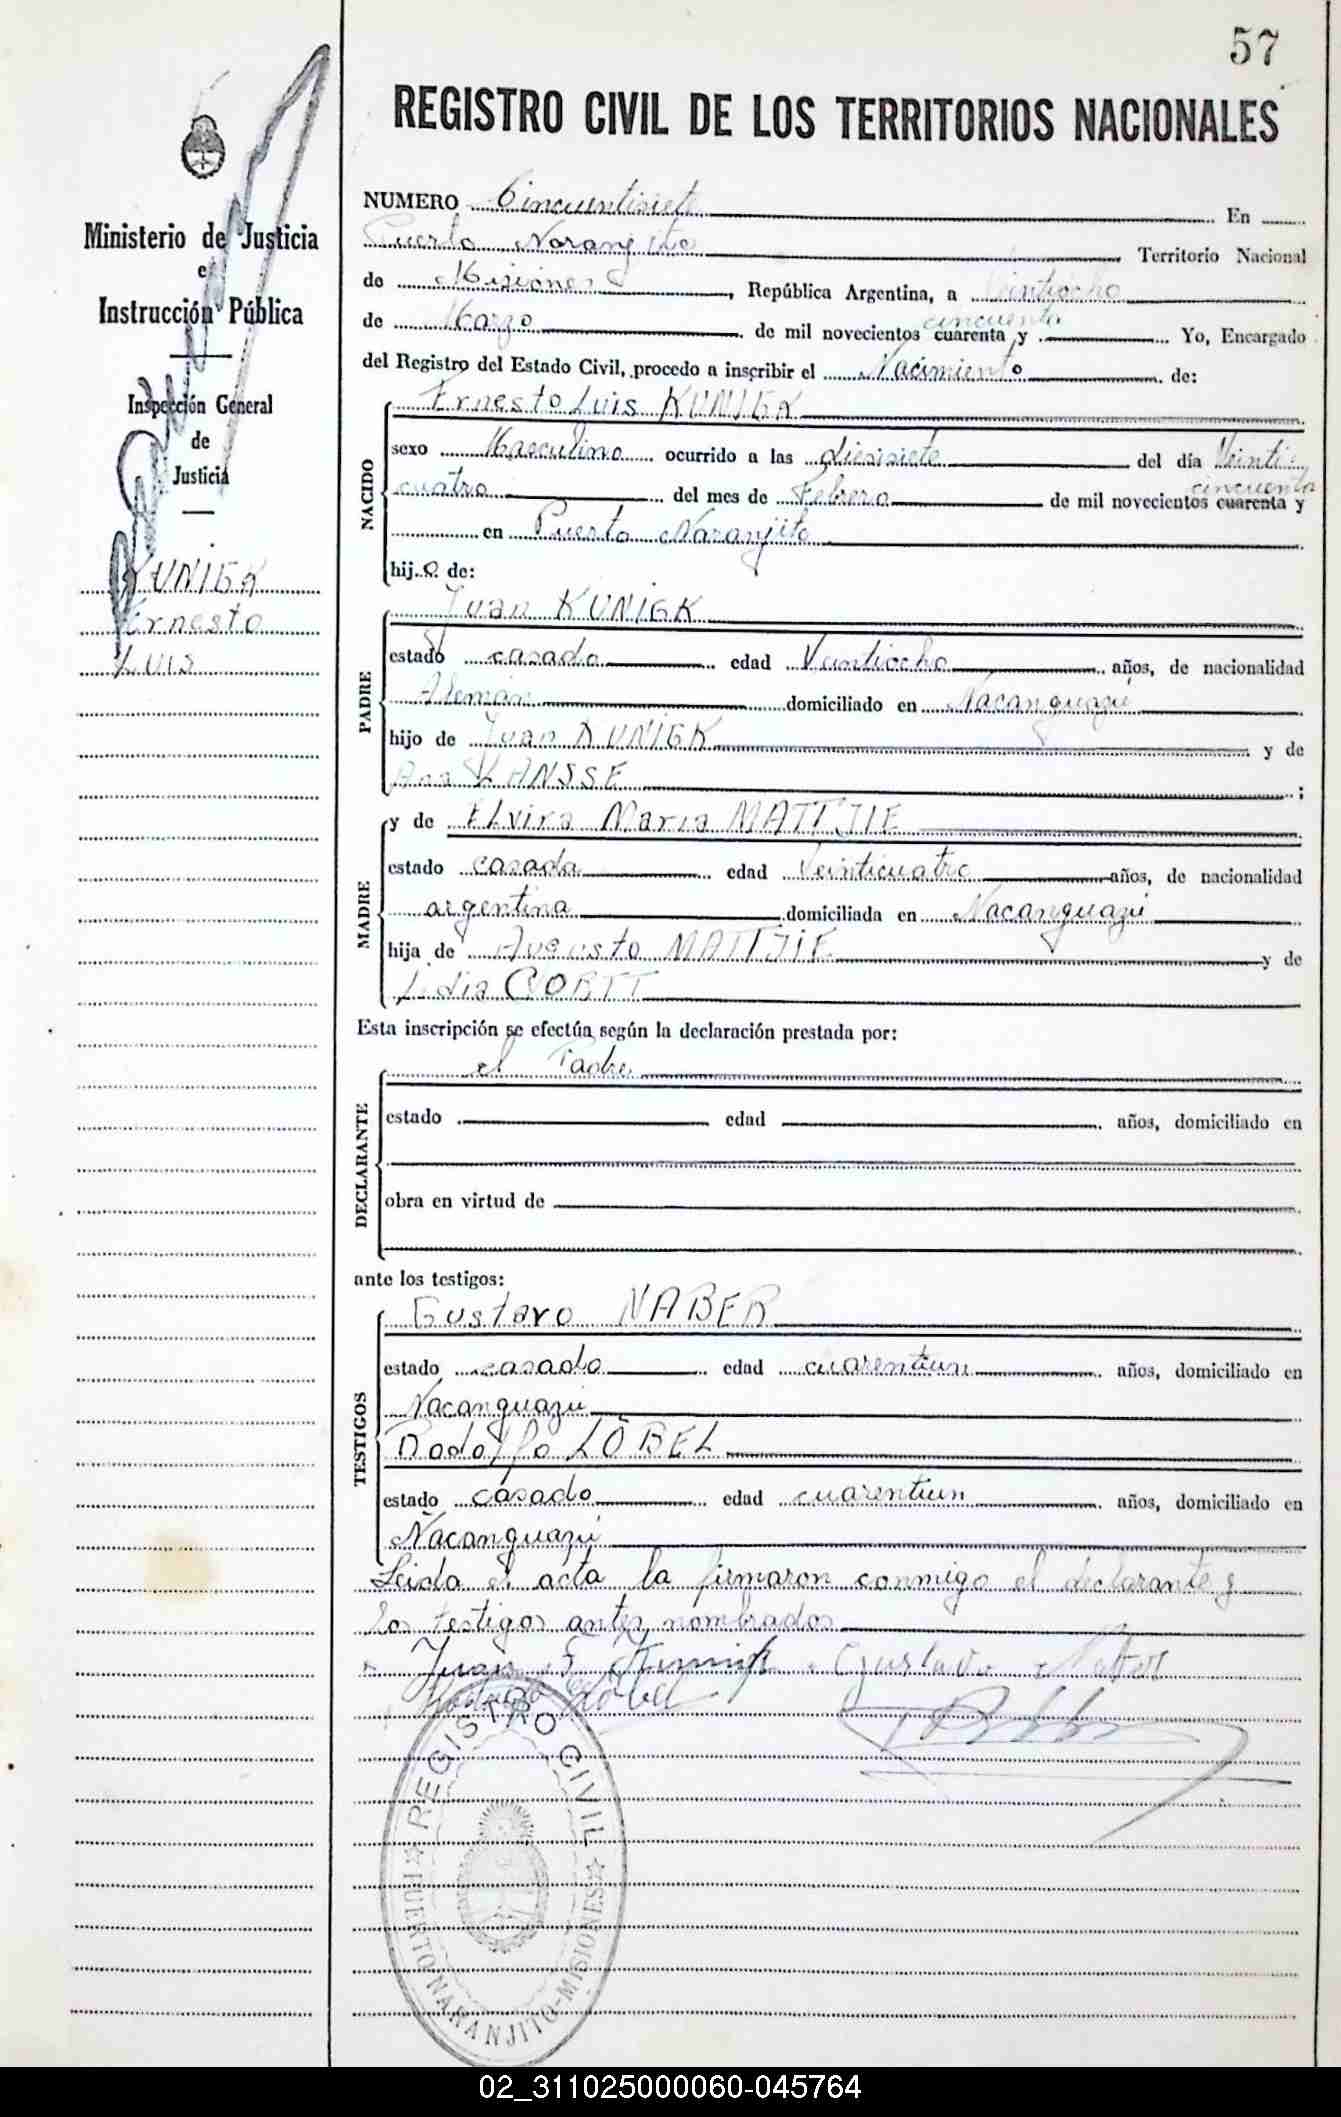 57
REGISTRO CIVIL DE LOS TERRITORIOS NACIONALES
Ministerio de Justicia
e
Instrucción Pública
Inspección General
de
Justicia
KUNIGK
Ernesto
Luis
NUMERO Cincuentisiete En
Puerto Naranjito Territorio Nacional
de Misiones, República Argentina, a Veintiocho
de Marzo de mil novecientos cuarenta y cincuenta Yo, Encargado
del Registro del Estado Civil, procedo a inscribir el Nacimiento de:
NACIDO
Ernesto Luis KUNIGK
sexo Masculino ocurrido a las diesisiete del día Veinti
cuatro del mes de Febrero de mil novecientos cuarenta y cincuenta
en Puerto Naranjito
hij o de:
PADRE
Juan KUNIGK
estado casado edad Veintiocho años, de nacionalidad
Alemán domiciliado en Ñacanguazú
hijo de Juan KUNIGK y de
Ana ;
MADRE
y de Elvira Maria MATTJIE
estado casada edad Veinticuatro años, de nacionalidad
argentina domiciliada en Ñacanguazú
hija de Augusto MATTJIE y de
Lidia
Esta inscripción se efectúa según la declaración prestada por:
DECLARANTE
el Padre
estado edad años, domiciliado en
obra en virtud de
ante los testigos:
TESTIGOS
Gustavo NABER
estado casado edad cuarentiun años, domiciliado en
Ñacanguazú
Rodolfo LÖBEL
estado casado edad cuarentiun años, domiciliado en
Ñacanguazú
Leida el acta la firmaron conmigo el declarante y
los testigos antes nombrados
Gustavo Naber
REGISTRO CIVIL
PUERTO NARANJITO-MISIONES
02_311025000060-045764